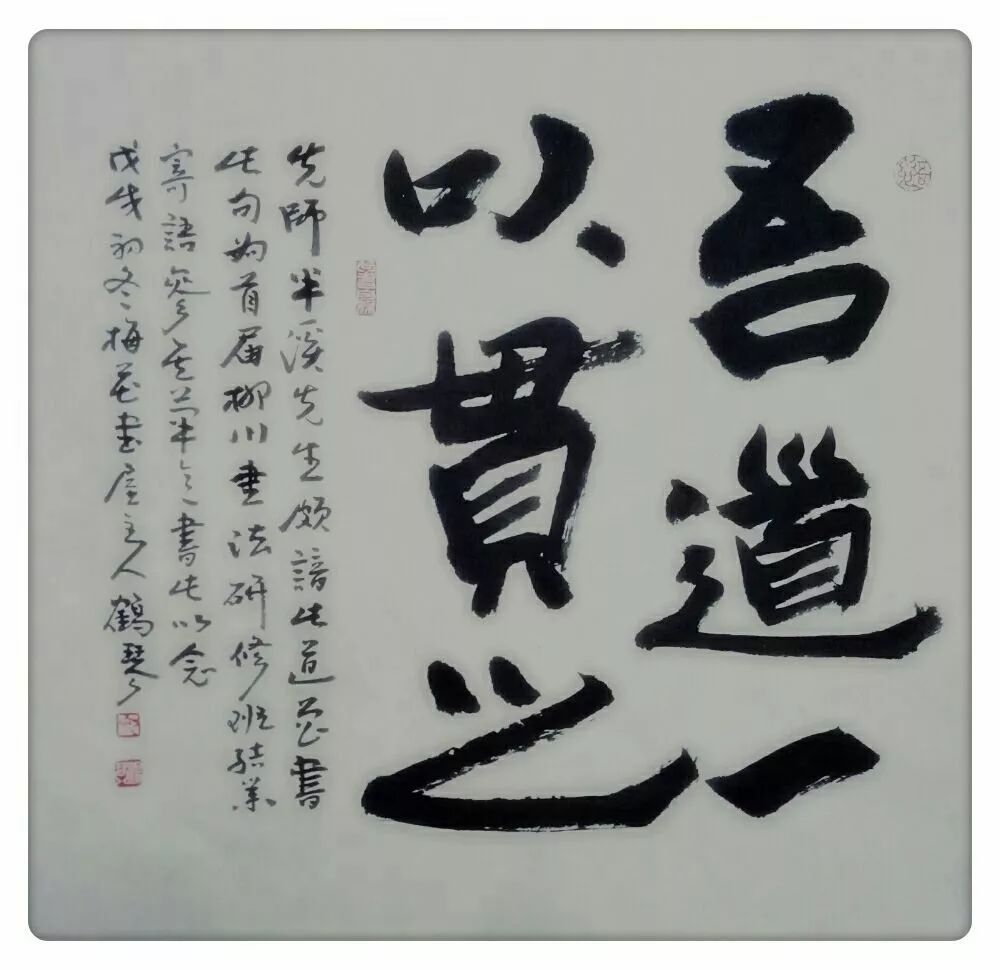 吾道一
以貫之
先師半溪先生頗諳此道曾書
此句為首届柳川書法研修班結業
寄語餘書此以念
戊戌初冬梅花書屋主人鶴琴